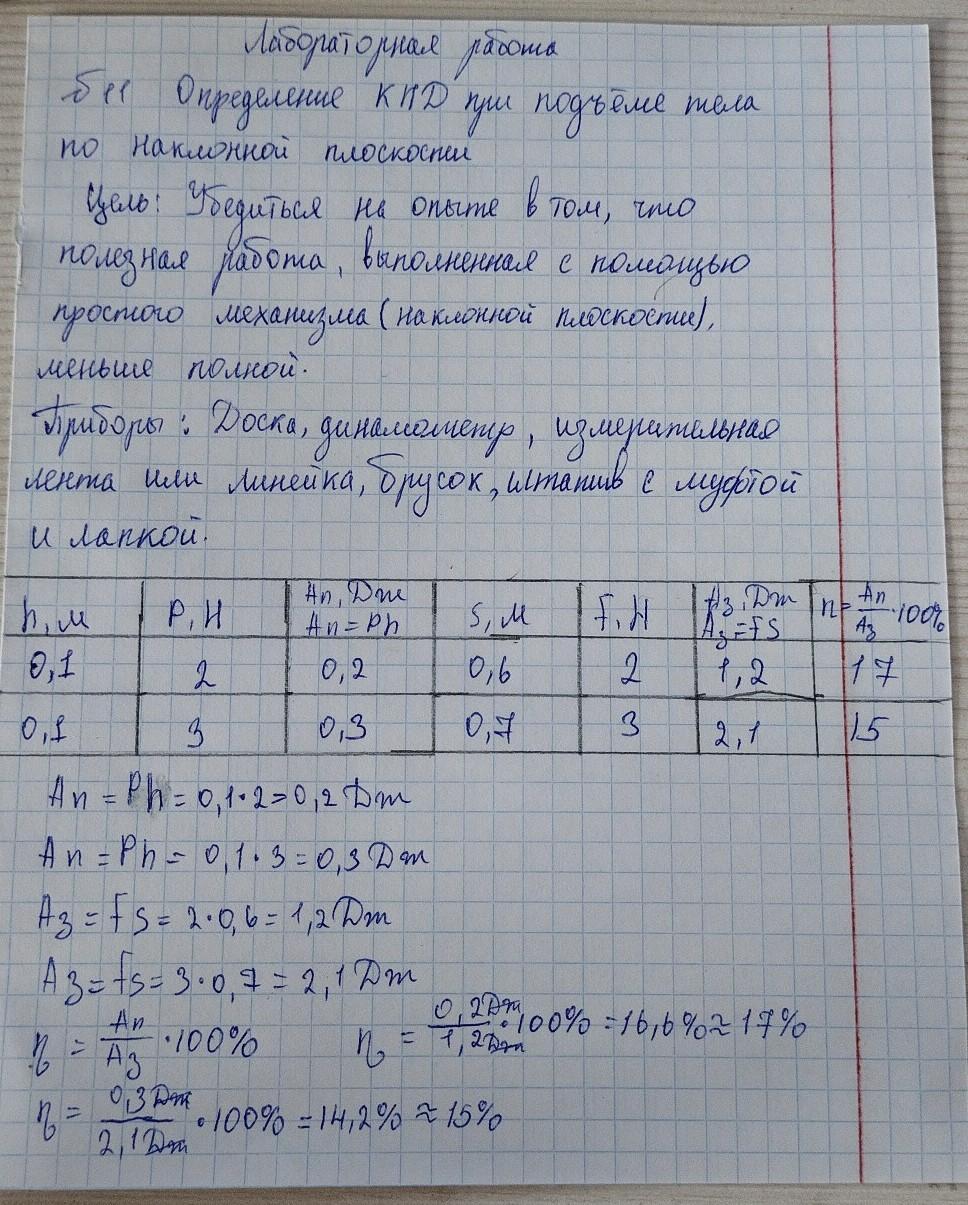 Лабораторная работа
№11 Определение КПД при подъёме тела
по наклонной плоскости
Цель: Убедиться на опыте в том, что
полезная работа, выполненная с помощью
простого механизма (наклонной плоскости),
меньше полной.
Приборы: Доска, динамометр, измерительная
лента или линейка, брусок, штатив с муфтой
и лапкой.
h, м P, Н Aп, Дж Aп = Ph S, м F, Н Aз, Дж Aз = FS η = Aп/Aз · 100%
0,1 2 0,2 0,6 2 1,2 17
0,1 3 0,3 0,7 3 2,1 15
Aп = Ph = 0,1 · 2 = 0,2 Дж
Aп = Ph = 0,1 · 3 = 0,3 Дж
Aз = FS = 2 · 0,6 = 1,2 Дж
Aз = FS = 3 · 0,7 = 2,1 Дж
η = Aп/Aз · 100% η = 0,2 Дж/1,2 Дж · 100% = 16,6% ≈ 17%
η = 0,3 Дж/2,1 Дж · 100% = 14,2% ≈ 15%